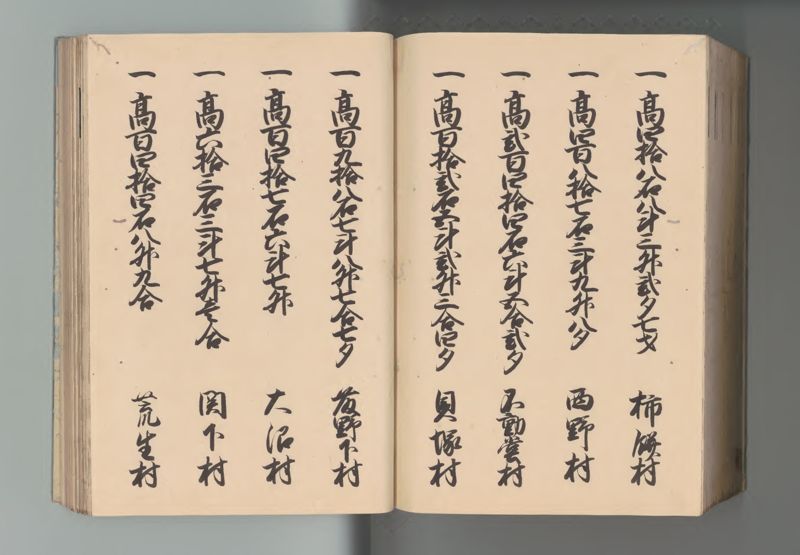 一 高四拾八石八斗三升弐夕七才 柿餅村
一 高四百八拾七石三斗九升八夕 西野村
一 高弐百四拾四石六斗五合弐夕 不動堂村
一 高百拾弐石壱斗弐升二合四夕 貝塚村
一 高百九拾八石七斗八升七合七夕 菱野下村
一 高百四拾七石六斗七升 大沼村
一 高六拾三石二斗七升壱合 関下村
一 高百四拾四石八升九合 荒生村